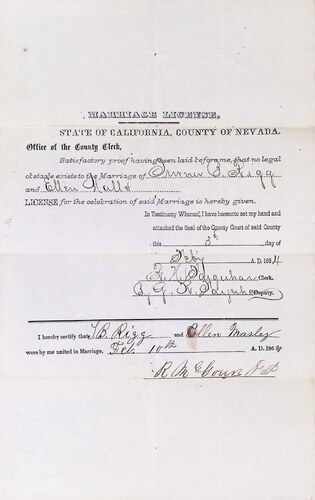 MARRIAGE LICENSE.
STATE OF CALIFORNIA, COUNTY OF NEVADA.
Office of the County Clerk,
Satisfactory proof having been laid before me, that no legal
obstacle exists to the Marriage of B. Rigg
and Ellen
LICENSE for the celebration of said Marriage is hereby given.
In Testimony Whereof, I have hereunto set my hand and
attached the Seal of the County Court of said County
this day of
Feby A. D. 1864
Clerk.
By Deputy.
I hereby certify that B. Rigg and Ellen Masley
were by me united in Marriage, Feb. 10th A. D. 1864